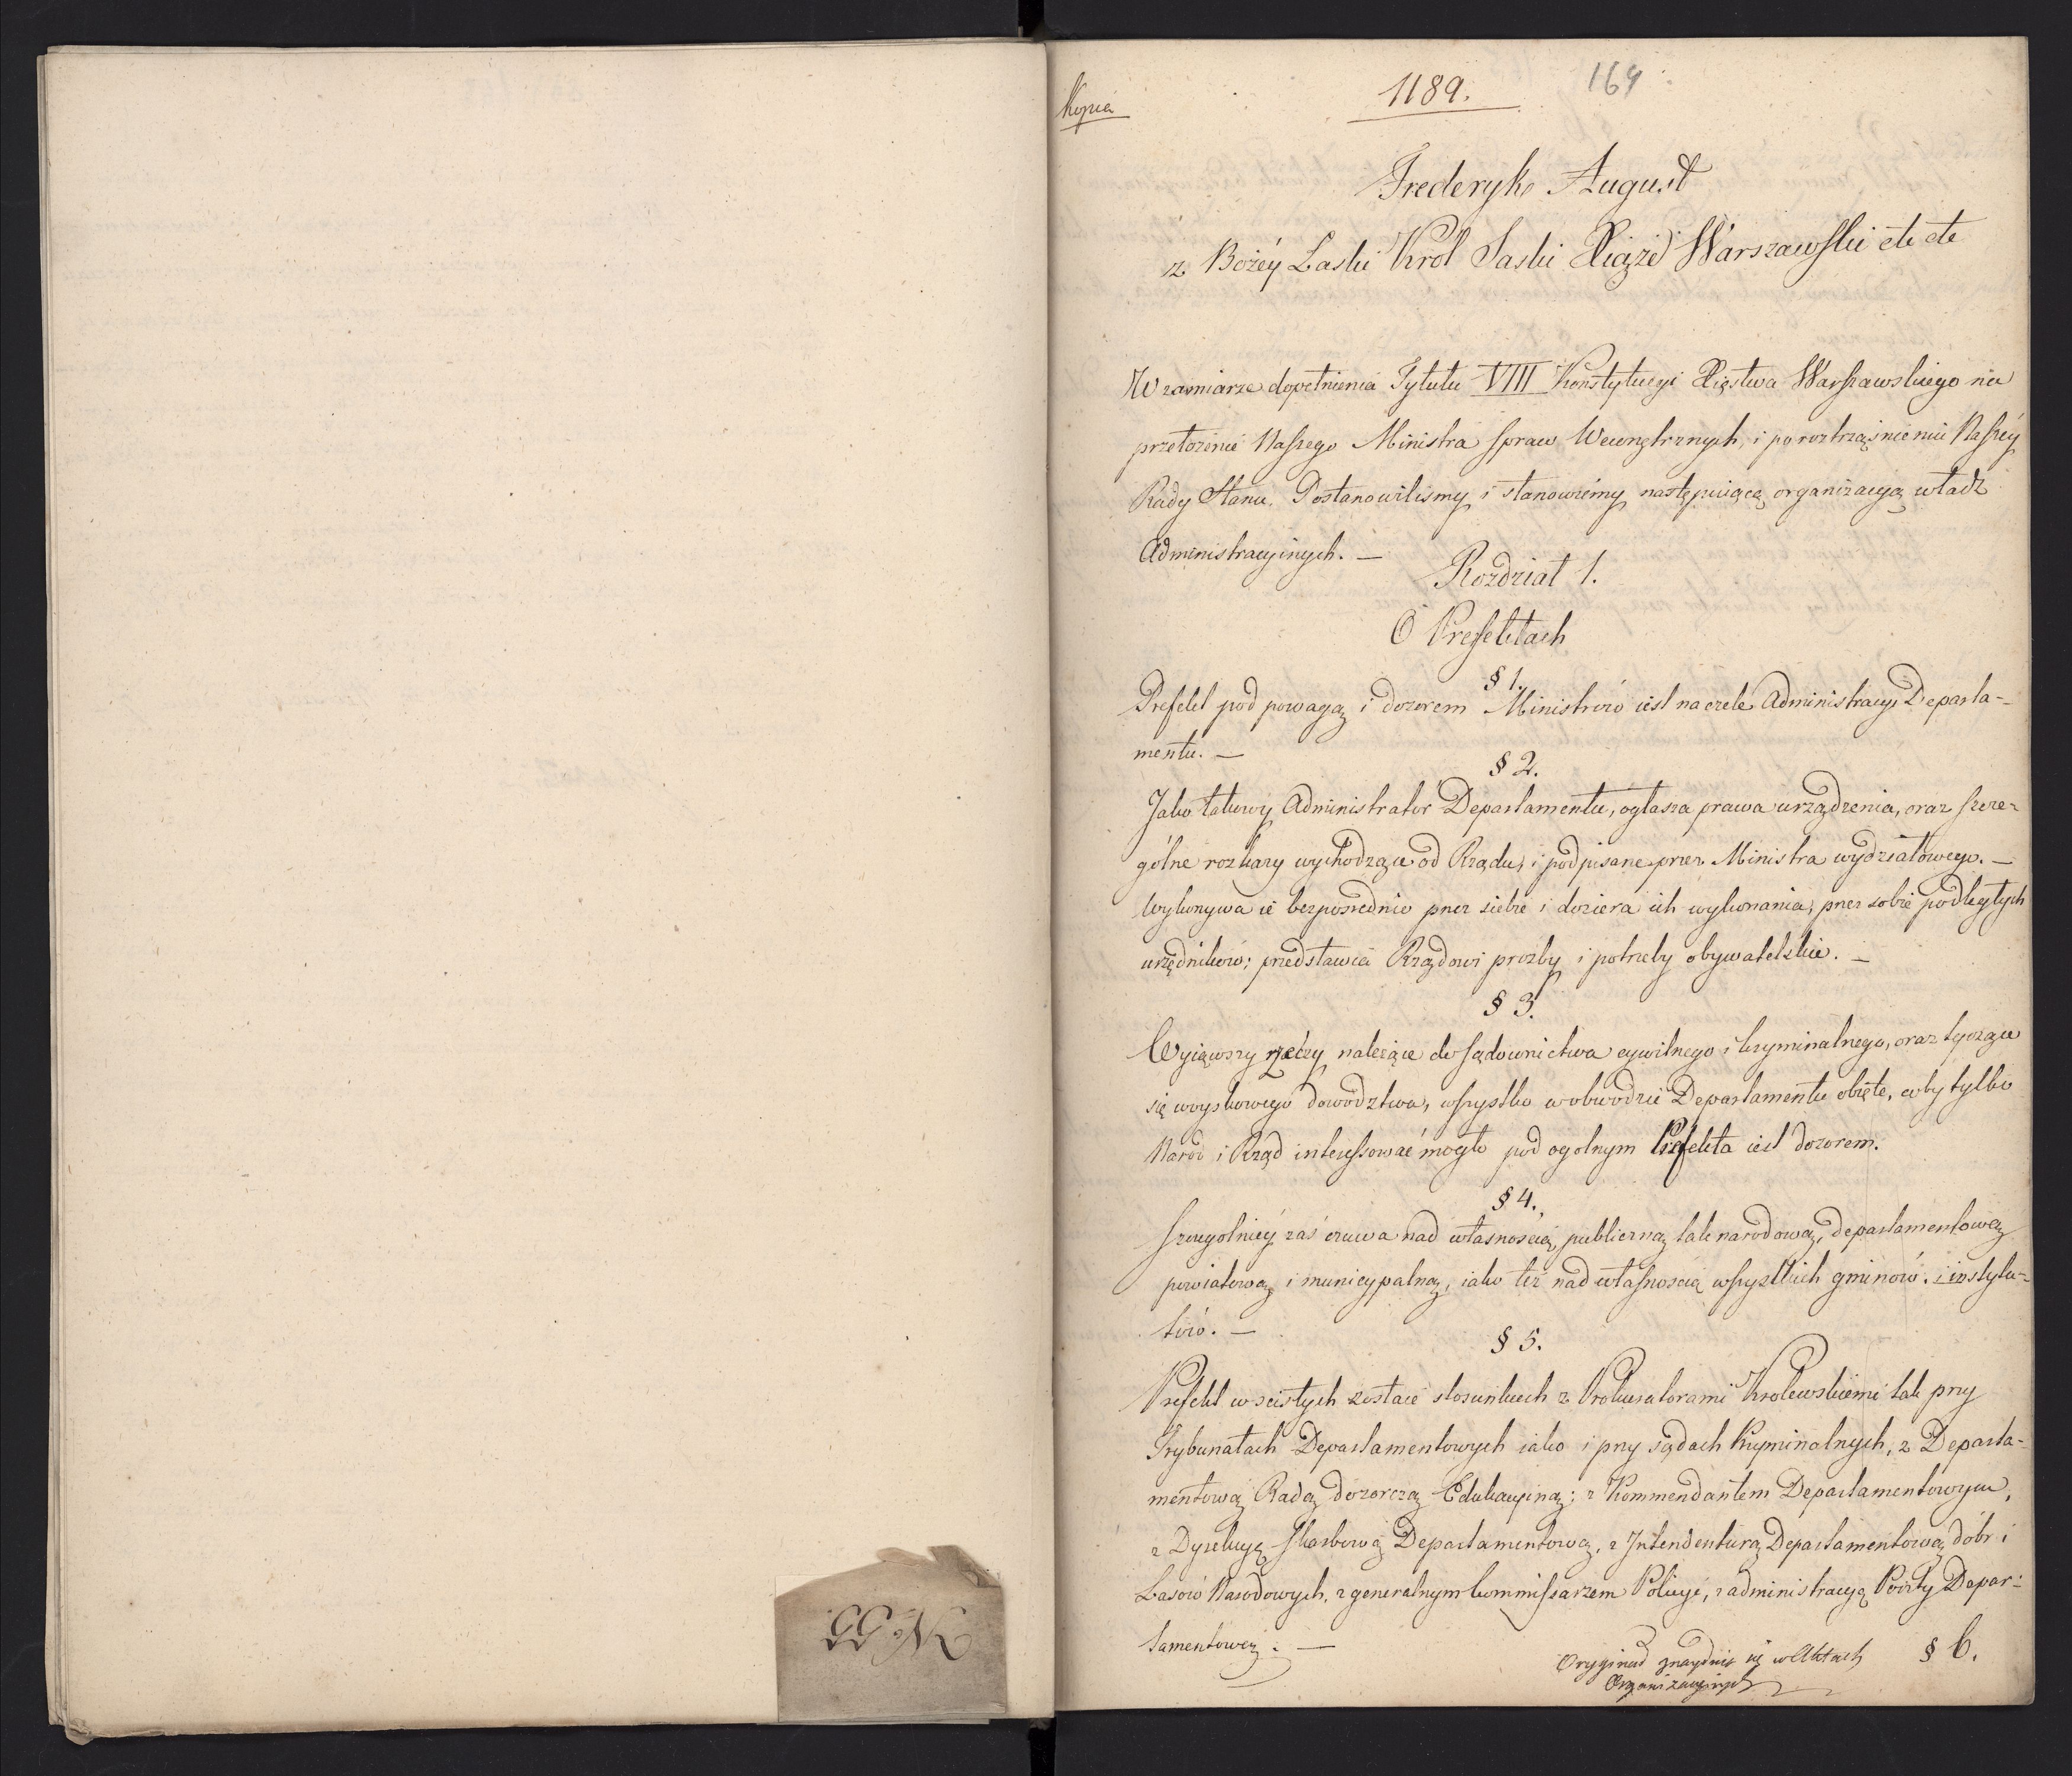 No 55.
Kopia
1189.
164
Frederyk August
z Bożéy Łaski Król Saski Xiąże Warszawski etc etc
W zamiarze dopełnienia Tytułu VIII Konstytucyi Xięstwa Warszawskiego na
przełożenie Naszego Ministra spraw Wewnętrznych, i po roztrząśnieniu Naszéy
Rady Stanu. Postanowiliśmy i stanowiémy następuiącą organizacyą władz
Administracyinych. —
Rozdział 1.
O Prefektach
§ 1.
Prefekt pod powagą i dozorem Ministrów iest na czele Administracyi Departa-
mentu. —
§ 2.
Jako takowy Administrator Departamentu, ogłasza prawa urządzenia, oraz szcze-
gólne rozkazy wychodzące od Rządu, i podpisane przez Ministra wydziałowego. —
Wykonywa ie bezpośrednio przez siebie i doziera ich wykonania, przez sobie podległych
urzędników; przedstawia Rządowi prośby i potrzeby obywatelskie. —
§ 3.
Wyiąwszy rzeczy należące do sądownictwa cywilnego i kryminalnego, oraz tyczące
się woyskowego dowództwa, wszystko w obwodzie Departamentu obięte, coby tylko
Naród i Rząd interessować mogło pod ogolnym Prefekta iest dozorem.
§ 4.
Szczegolniéy zaś czuwa nad własnością publiczną tak narodową, departamentową
powiatową i municypalną, iako też nad własnoscią wszystkich gminów i instytu-
tów. —
§ 5.
Prefekt w scisłych zostaie stosunkach z Prokuratorami Krolewskiemi tak przy
Trybunałach Departamentowych iako i przy sądach Kryminalnych, z Departa-
mentową Radą dozorczą Edukacyiną; z Kommendantem Departamentowym,
z Dyrekcyą Skarbową Departamentową, z Intendenturą Departamentową dóbr i
Lasów Narodowych, z generalnym kommissarzem Policyi, z administracyą Poczty Depar-
tamentowéy. —
Oryginał znayduie się w Aktach
Organizacyinych
§ 6.